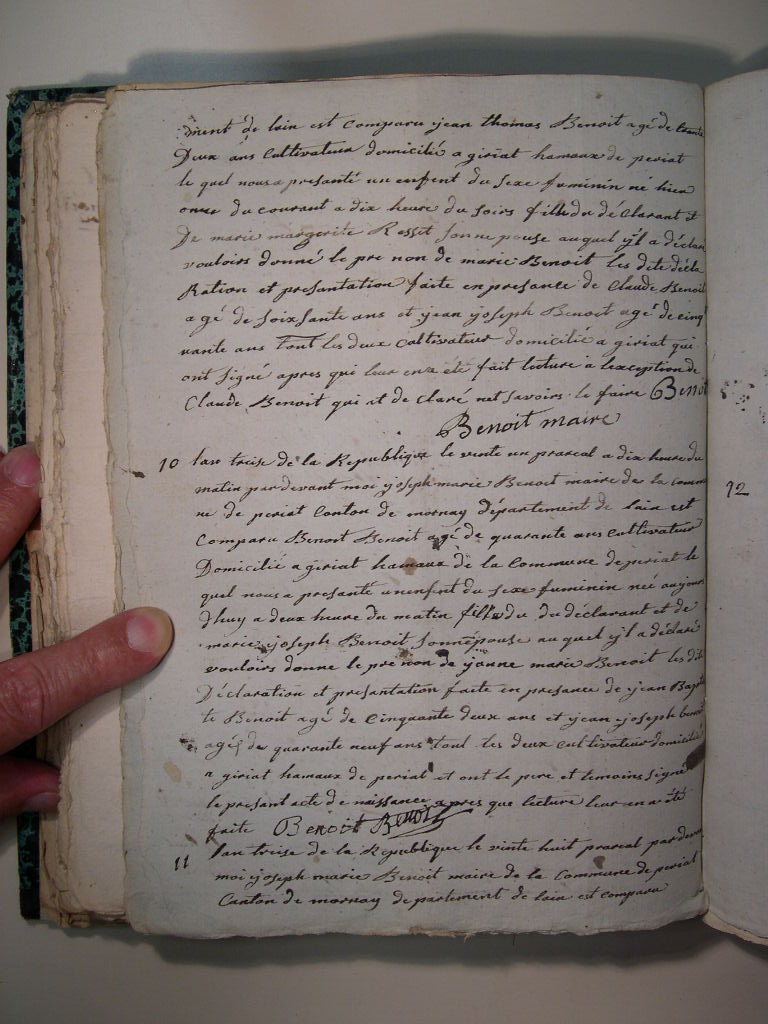 ment de lain est Comparu jean thomas Benoit agé de trante
Deux ans Cultivateur domicilié a giriat hamaux de periat
le quel nous a presanté un enfent du sexe fuminin né hier
onze du courant a dix heure du soirs fille du dé Clarant et
De marie margerite Rosset sonne pouse au quel y'l a déclaré
vouloirs donné le pre non de marie Benoit les dite décla
Ration et presantation faite en presance de Claude Benoit
agé de soixsante ans et jean joseph Benoit agé de cinq
vante ans Tout les deux Cultivateur domicilié a giriat qui
ont Signé apres qui leur en a été fait lecture a lexception de
Claude Benoit qui at de claré net savoirs le faire Benoit
Benoit maire
10 lan treise de la Republique le vente un prareal a dix heure du
matin pardevant moi joseph marie Benoit maire de la commu
ne de periat Conton de mornay département de lain est
Comparu Benoit Benoit agé de quarante ans cultivateur
Domicilié a giriat hamaux de la Commune de periat le
quel nous a presanté un enfent du sexe fuminin neé aujour
dhuy a deux heure du matin fille du du déclarant et de
marie joseph Benoit sonnépouse au quel y'l a déclaré
vouloirs donne le pre non de janne marie Benoit les dite
Déclaration et presantation faite en presance de jean Bapti
te Benoit agé de Cinquante deux ans et jean joseph benoit
agés de quarante neuf ans tout les deux cultivateur domicilié
a giriat hamaux de periat et ont le pere et temoins signé
le presant acte de naissance apres que lecture leur en a été
faite Benoit Benoit
11 lan treise de la Republique le vinte huit prareal par devan
moi joseph marie Benoit maire de la Commune de periat
Canton de mornay departement de lain est comparu
92